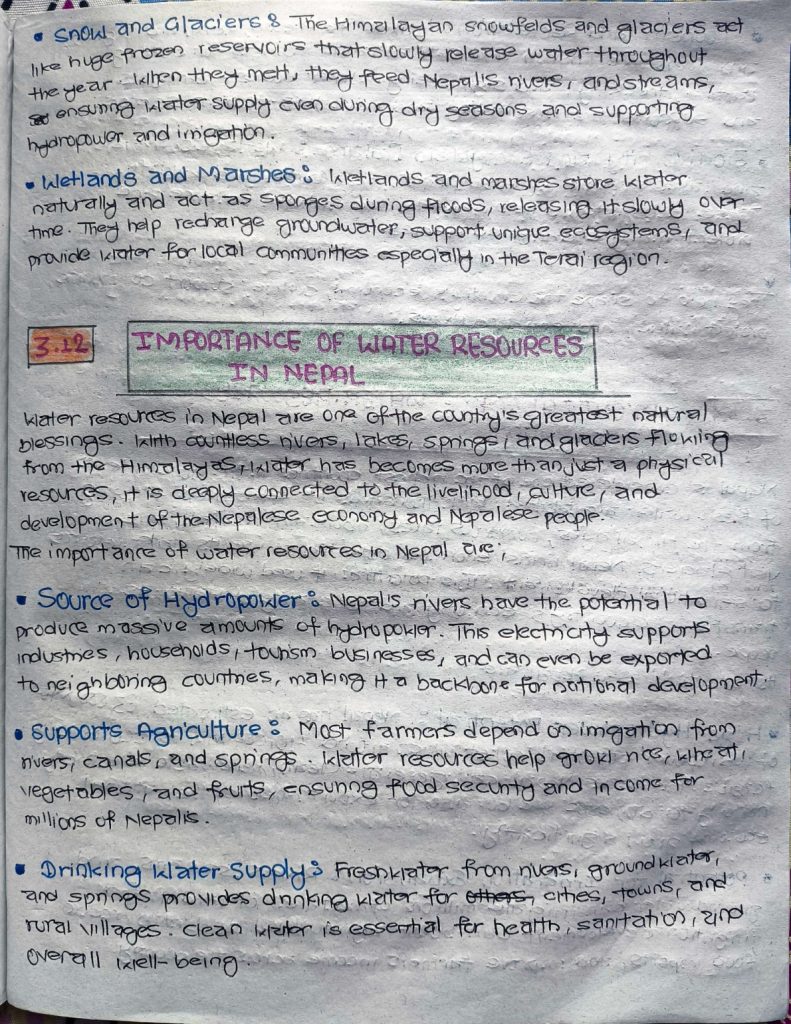 • Snow and Glaciers : The Himalayan snowfelds and glaciers act
like huge frozen reservoirs that slowly release water throughout
the year. When they melt, they feed Nepal's rivers, and streams,
ensuring water supply even during dry seasons and supporting
hydropower and irrigation.
• Wetlands and Marshes : Wetlands and marshes store water
naturally and act as sponges during floods, releasing it slowly over
time. They help rechange groundwater, support unique ecosystems, and
provide water for local communities especially in the Terai region.
3.12 IMPORTANCE OF WATER RESOURCES
IN NEPAL
Water resources in Nepal are one of the country's greatest natural
blessings. With countless rivers, lakes, springs, and glaciers flowing
from the Himalayas, water has becomes more than just a physical
resources, it is deeply connected to the livelihood, culture, and
development of the Nepalese economy and Nepalese people.
The importance of water resources in Nepal are;
• Source of Hydropower : Nepal's rivers have the potential to
produce massive amounts of hydropower. This electricity supports
industries, households, tourism businesses, and can even be exported
to neighboring countries, making it a backbone for national development.
• Supports Agriculture : Most farmers depend on irrigation from
rivers, canals, and springs. Water resources help grow rice, wheat,
vegetables, and fruits, ensuring food security and income for
millions of Nepalis.
• Drinking Water Supply : Freshwater from rivers, groundwater,
and springs provides drinking water for others, cities, towns, and
rural villages. Clean water is essential for health, sanitation, and
overall well-being.